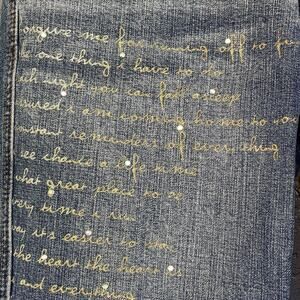 orgive me for running off to fi
one thing i have to do
ch night you can fall asleep
sured i am coming home to you
onstant reminders of every thing
ee chance a life time
hat great place to be
very time i run
ay it's easier to
the heart the heart is
and everything